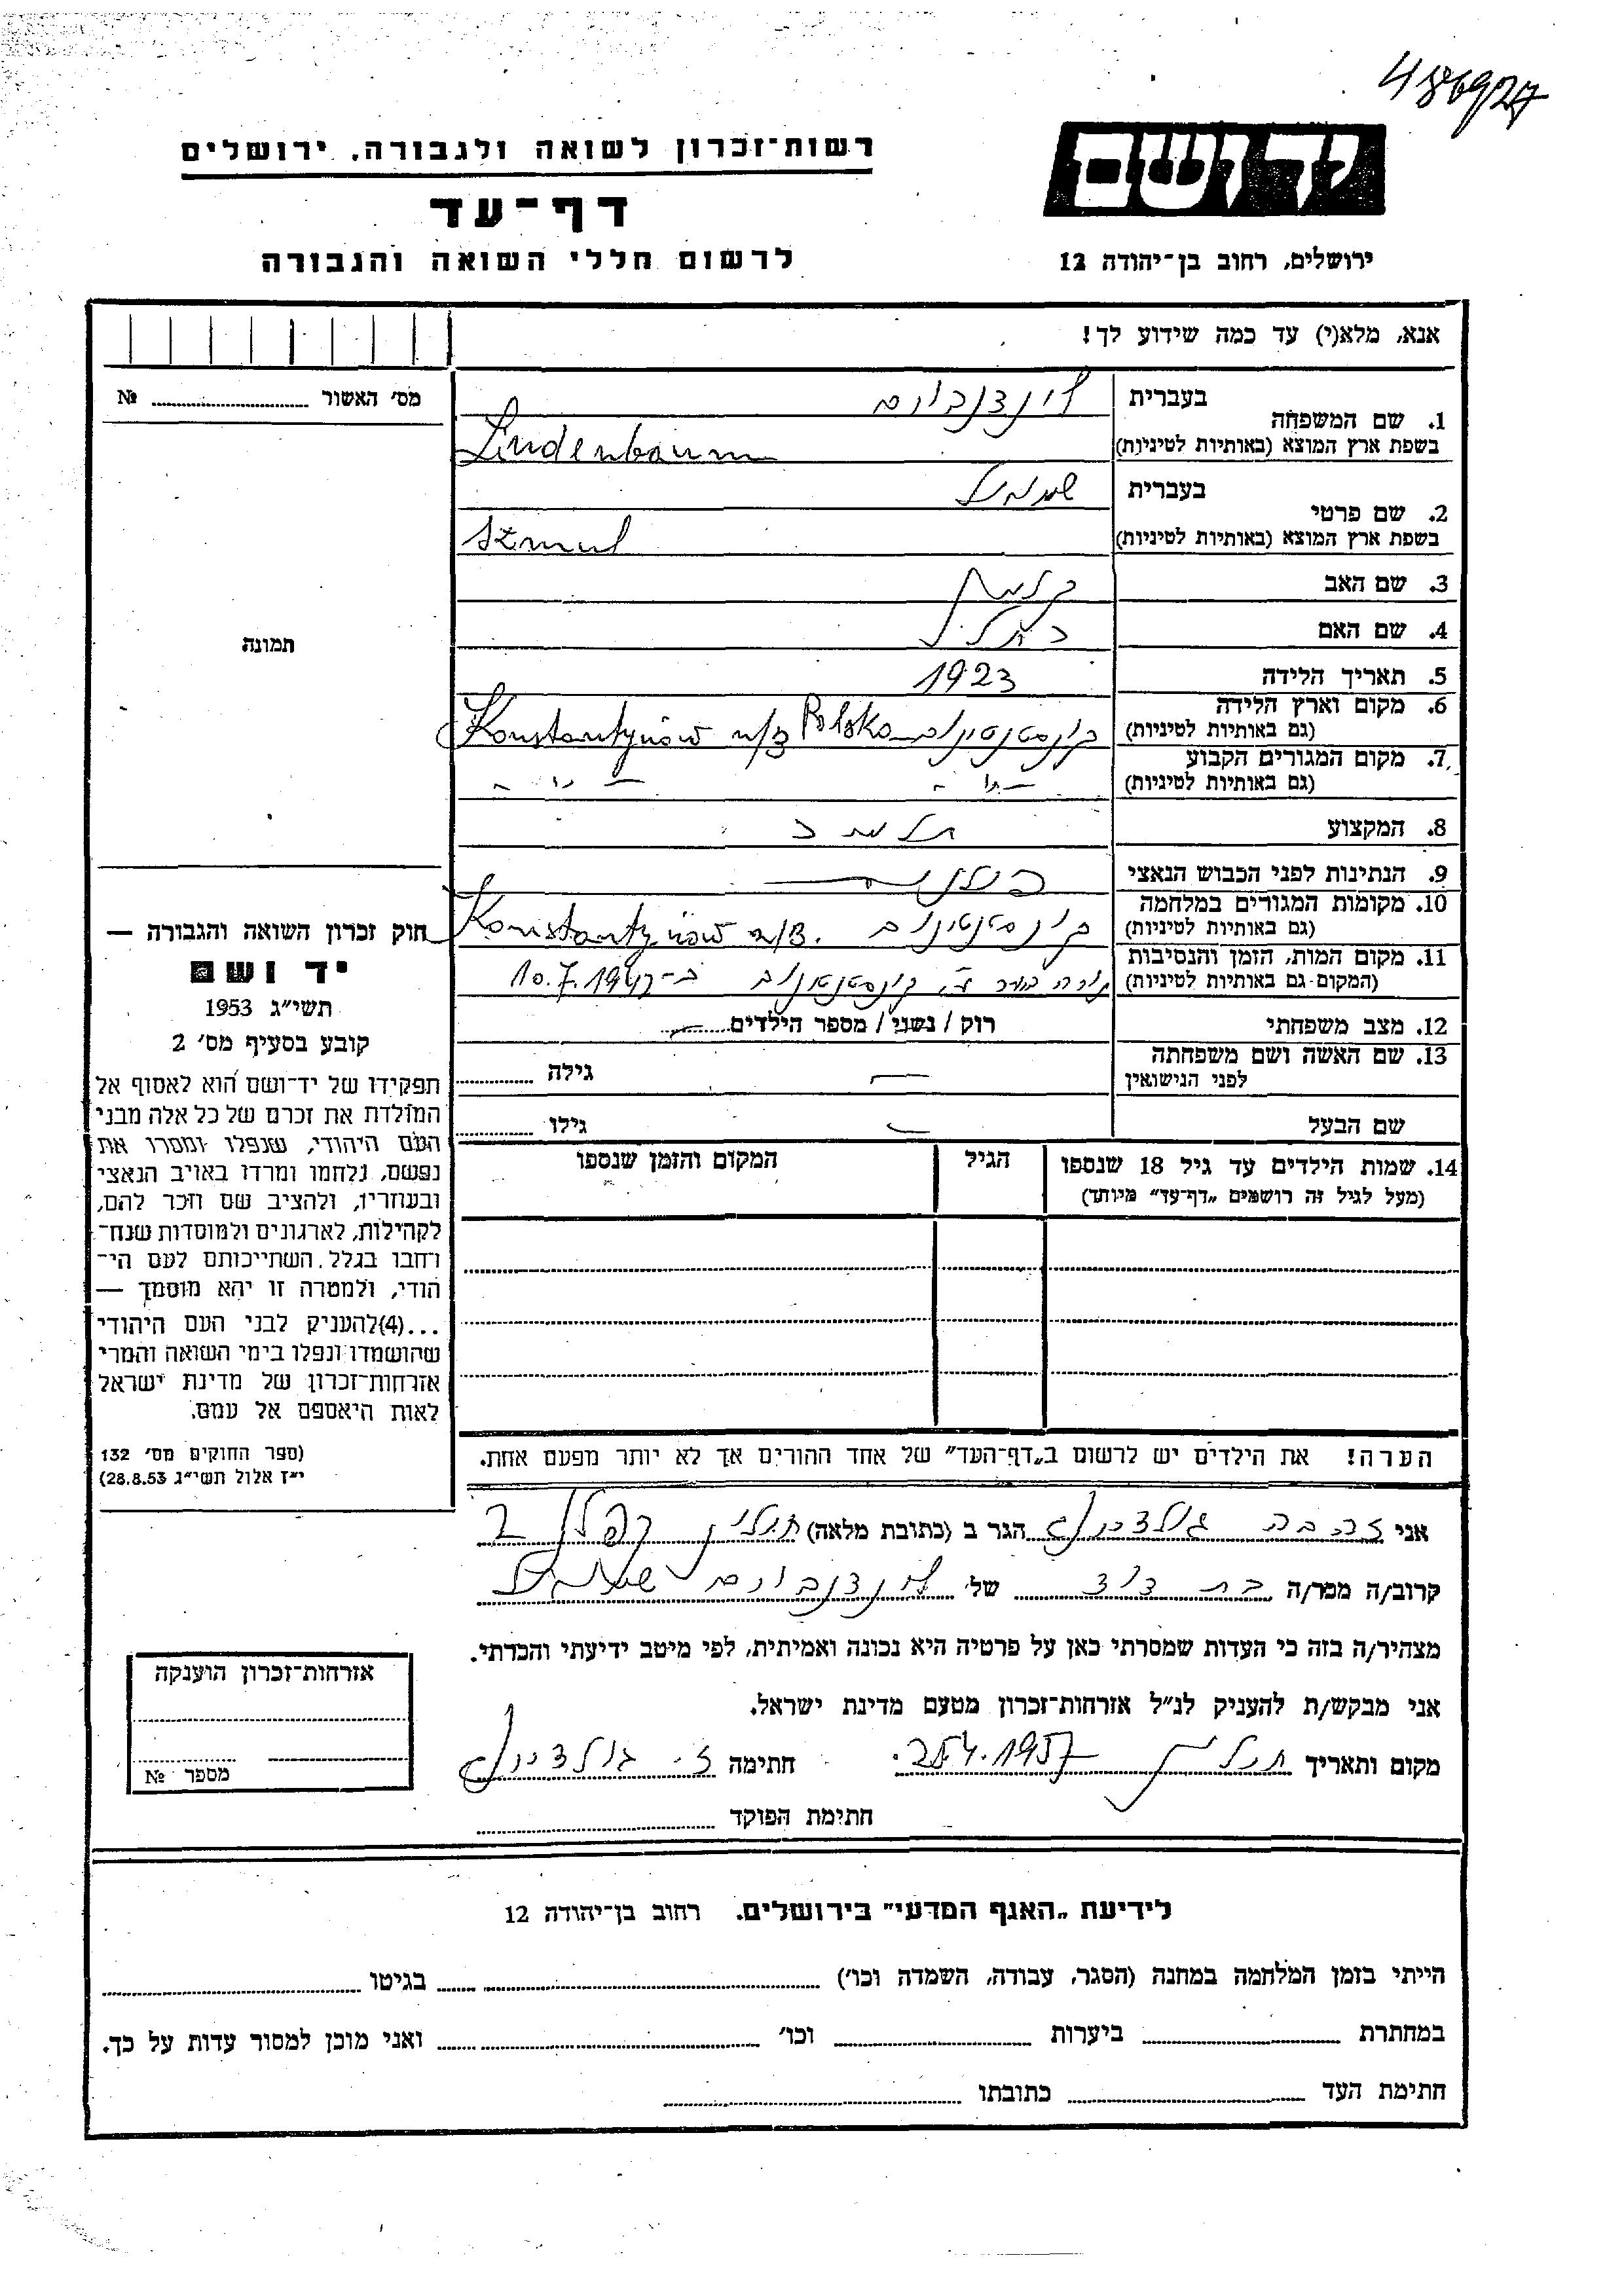 486927
יד ושם
רשות־זכרון לשואה ולגבורה, ירושלים
דף־עד
לרשום חללי השואה והגבורה
ירושלים, רחוב בן־יהודה 12
אנא, מלא(י) עד כמה שידוע לך!
מס׳ האשור № 
תמונה
1. שם המשפחה
בעברית לינדנבוים
בשפת ארץ המוצא (באותיות לטיניות) Lindenbaum
2. שם פרטי
בעברית שמואל
בשפת ארץ המוצא (באותיות לטיניות) Szmul
3. שם האב
4. שם האם
5. תאריך הלידה 1923
6. מקום וארץ הלידה
(גם באותיות לטיניות) קונסטנטינוב Polska Konstantynów n/B
7. מקום המגורים הקבוע
(גם באותיות לטיניות) –"– –"–
8. המקצוע תלמיד
9. הנתינות לפני הכבוש הנאצי פולנית
10. מקומות המגורים במלחמה
(גם באותיות לטיניות) קונסטנטינוב Konstantynów n/B.
11. מקום המות, הזמן והנסיבות
(המקום גם באותיות לטיניות) נורה קונסטנטינוב ב־10.7.1942
12. מצב משפחתי רוק / נשוי / מספר הילדים –
13. שם האשה ושם משפחתה
לפני הנישואין – גילה
שם הבעל – גילו
14. שמות הילדים עד גיל 18 שנספו
(מעל לגיל זה רושמים „דף־עד" מיוחד)
הגיל
המקום והזמן שנספו
הערה! את הילדים יש לרשום ב„דף־העד" של אחד ההורים אך לא יותר מפעם אחת.
חוק זכרון השואה והגבורה —
יד ושם
תשי״ג 1953
קובע בסעיף מס׳ 2
תפקידו של יד־ושם הוא לאסוף אל
המולדת את זכרם של כל אלה מבני
העם היהודי, שנפלו ומסרו את
נפשם, נלחמו ומרדו באויב הנאצי
ובעוזריו, ולהציב שם וזכר להם,
לקהילות, לארגונים ולמוסדות שנח־
רחבו בגלל השתייכותם לעם הי־
הודי, ולמטרה זו יהא מוסמך —
...(4) להעניק לבני העם היהודי
שהושמדו ונפלו בימי השואה והמרי
אזרחות־זכרון של מדינת ישראל
לאות היאספם אל עמם.
(ספר החוקים מס׳ 132
י״ז אלול תשי״ג 28.8.53)
אני זהבה גולדברג הגר ב (כתובת מלאה) חולון קפלן 2
קרוב/ה מכר/ה בת דוד של לינדנבוים שמואל
מצהיר/ה בזה כי העדות שמסרתי כאן על פרטיה היא נכונה ואמיתית, לפי מיטב ידיעתי והכרתי.
אני מבקש/ת להעניק לנ״ל אזרחות־זכרון מטעם מדינת ישראל.
מקום ותאריך חולון 25.4.1957 חתימה ז. גולדברג
חתימת הפוקד
אזרחות־זכרון הוענקה
מספר №
לידיעת „האגף המדעי" בירושלים. רחוב בן־יהודה 12
הייתי בזמן המלחמה במחנה (הסגר, עבודה, השמדה וכו׳) בגיטו
במחתרת ביערות וכו׳ ואני מוכן למסור עדות על כך.
חתימת העד כתובתו